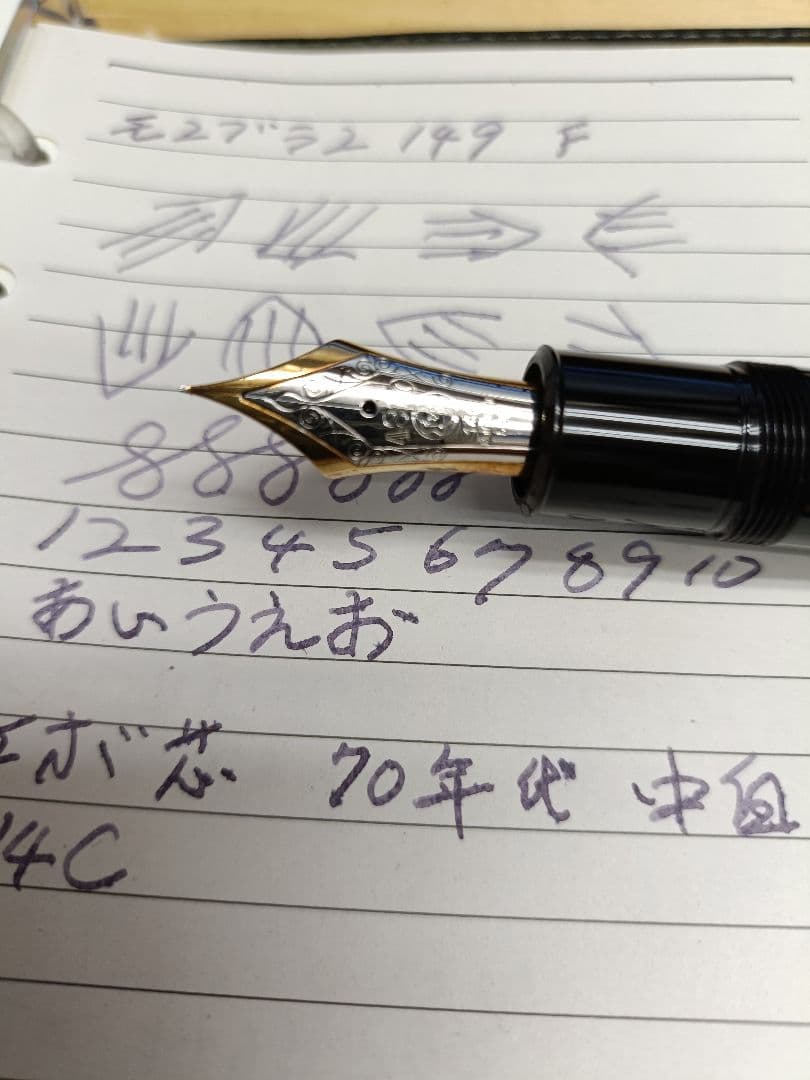 モンブラン 149 F
888888
1 2 3 4 5 6 7 8 9 10
あいうえお
が芯 70年代 中白
14C